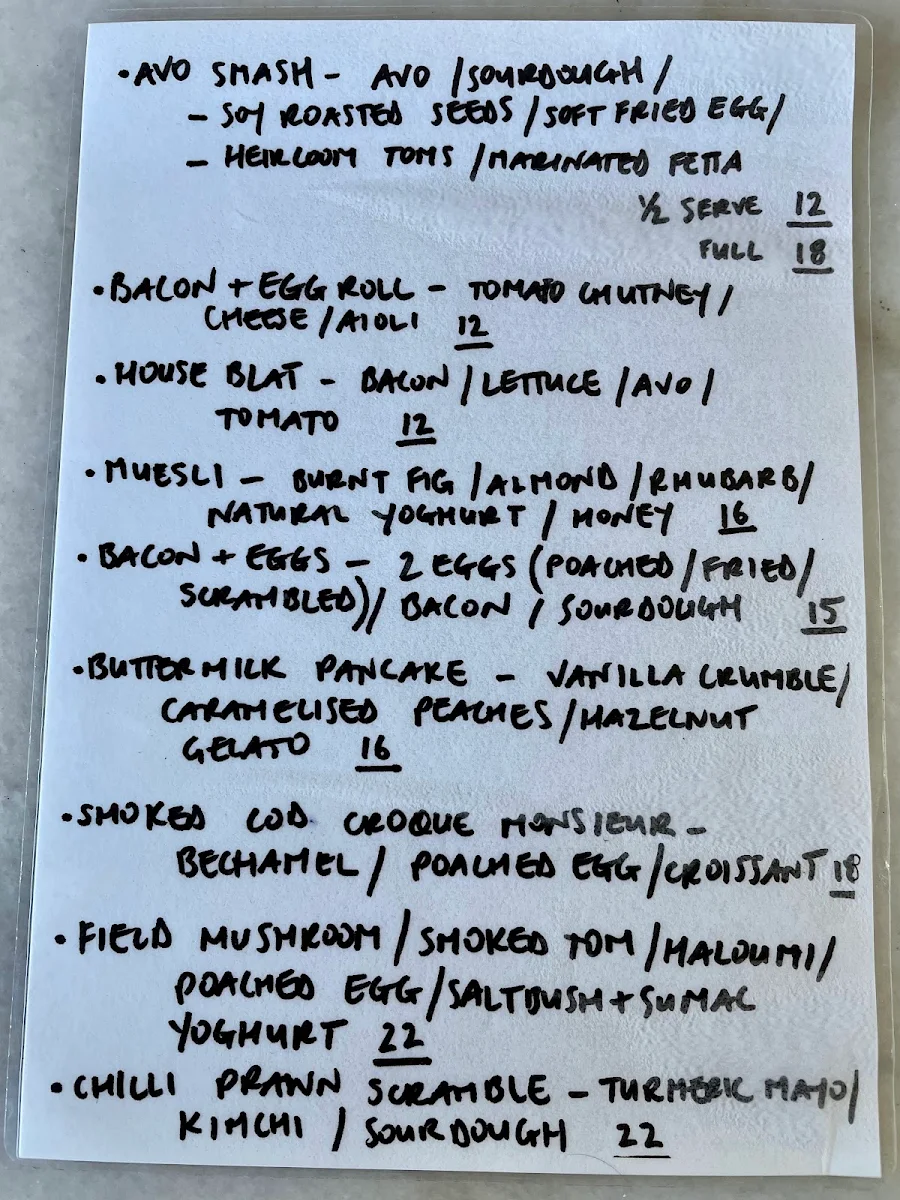 • AVO SMASH - AVO / SOURDOUGH /
- SOY ROASTED SEEDS / SOFT FRIED EGG /
- HEIRLOOM TOMS / MARINATED FETTA
1/2 SERVE 12
FULL 18
• BACON + EGG ROLL - TOMATO CHUTNEY /
CHEESE / AIOLI 12
• HOUSE BLAT - BACON / LETTUCE / AVO /
TOMATO 12
• MUESLI - BURNT FIG / ALMOND / RHUBARB /
NATURAL YOGHURT / HONEY 16
• BACON + EGGS - 2 EGGS (POACHED / FRIED /
SCRAMBLED) / BACON / SOURDOUGH 15
• BUTTERMILK PANCAKE - VANILLA CRUMBLE /
CARAMELISED PEACHES / HAZELNUT
GELATO 16
• SMOKED COD CROQUE MONSIEUR -
BECHAMEL / POACHED EGG / CROISSANT 18
• FIELD MUSHROOM / SMOKED TOM / HALOUMI /
POACHED EGG / SALTBUSH + SUMAC
YOGHURT 22
• CHILLI PRAWN SCRAMBLE - TURMERIC MAYO /
KIMCHI / SOURDOUGH 22